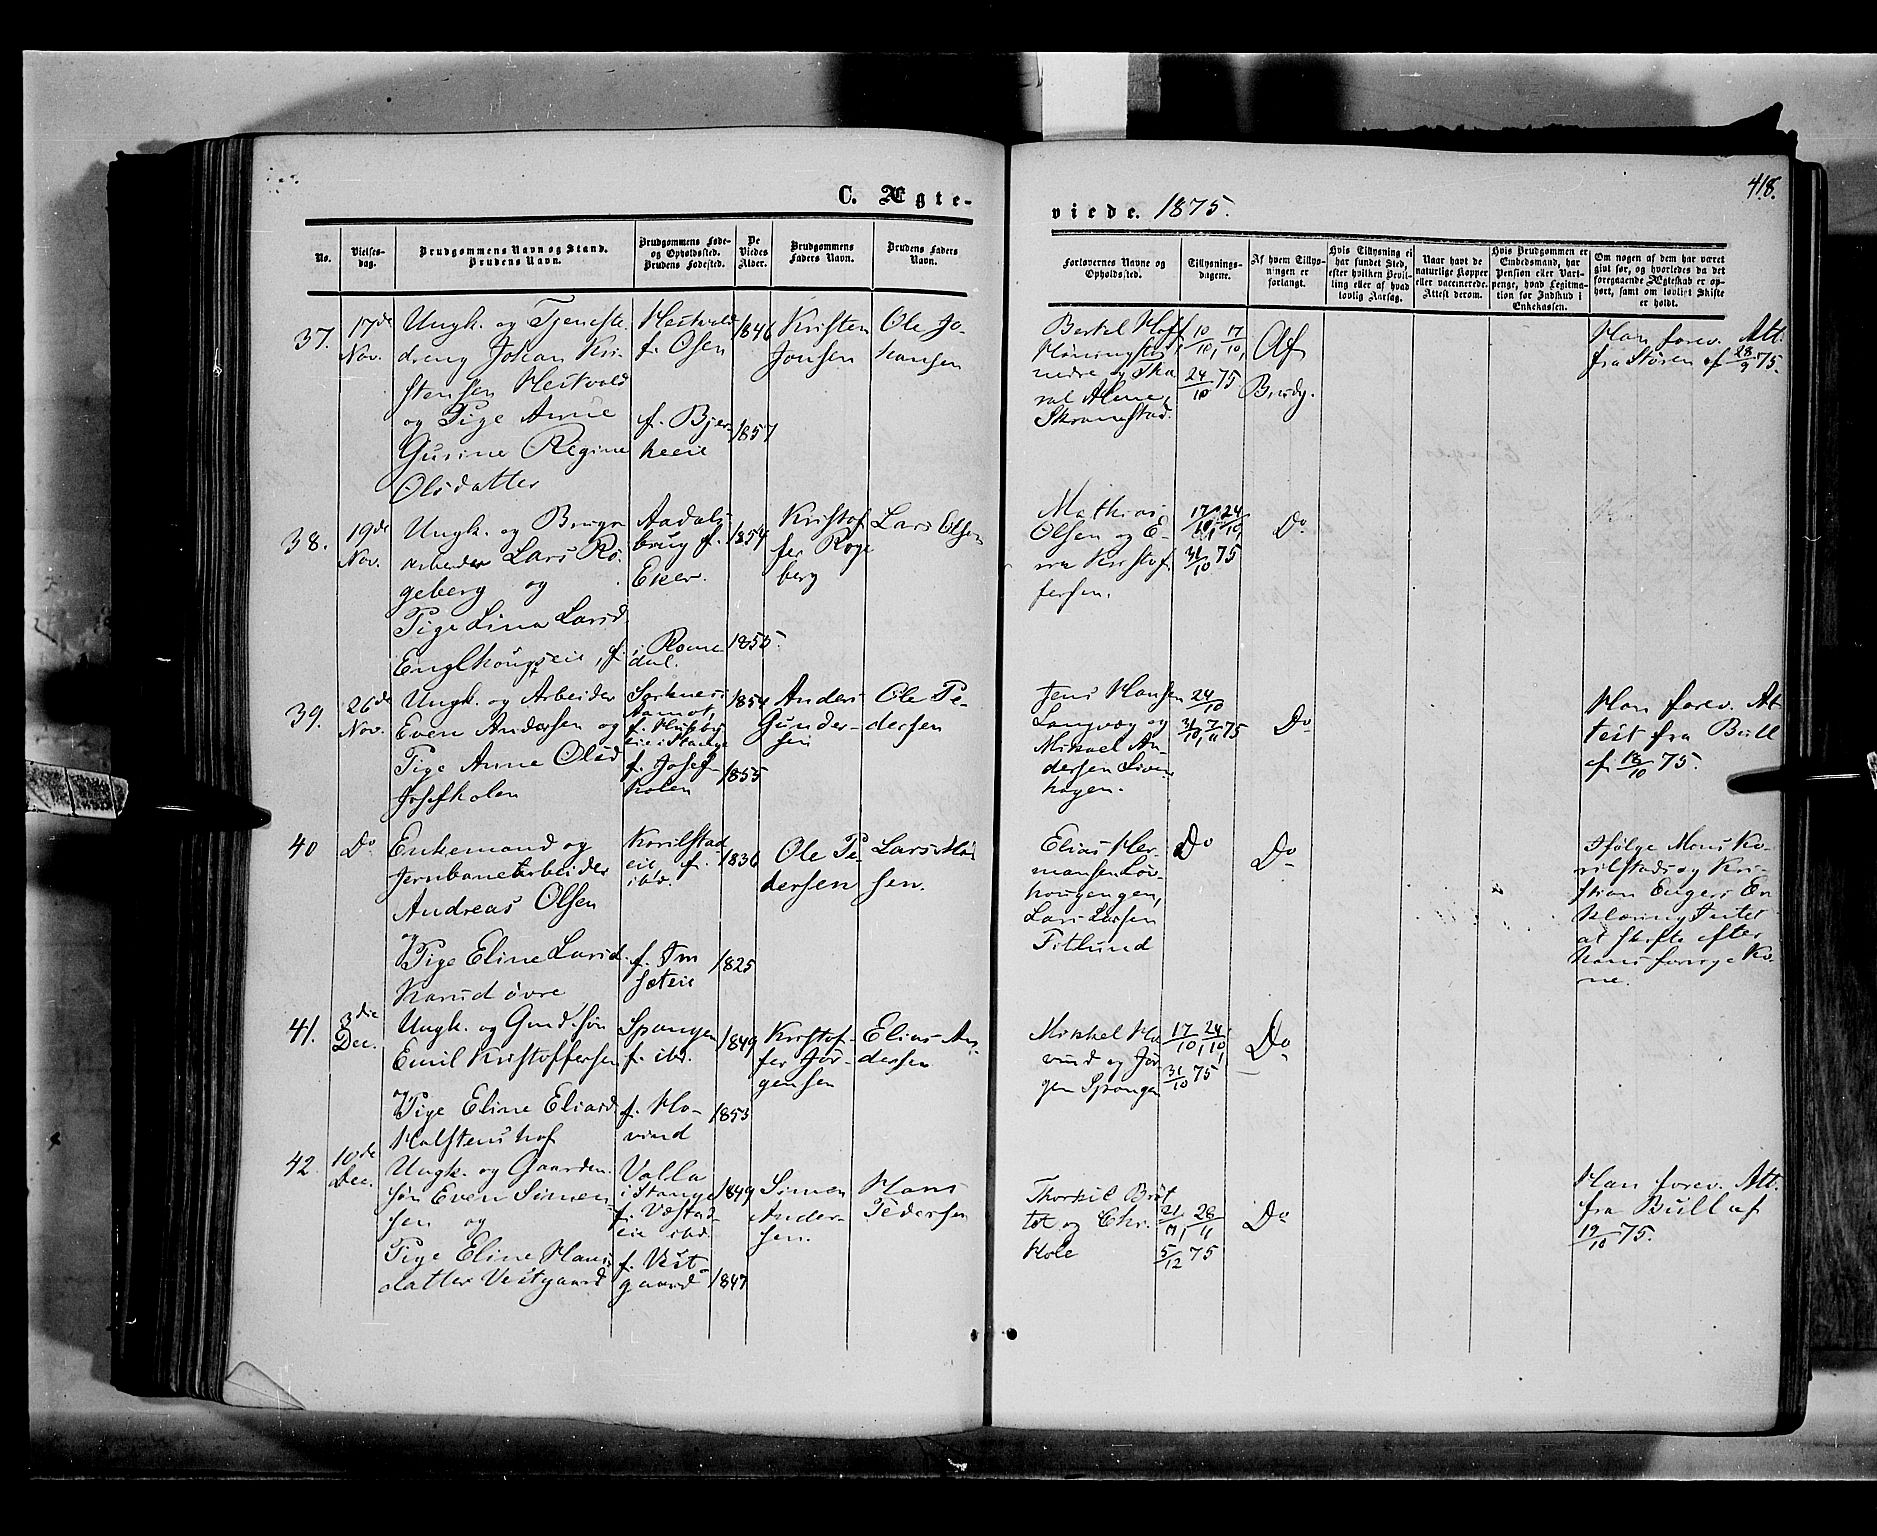 418.
C. Ægte-
viede. 1875.
No.
Vielses-
dag.
Brudgommens Navn og Stand.
Brudens Navn.
Brudgommens Føde-
og Opholdssted.
Brudens Fødested.
De
Viedes
Alder.
Brudgommens
Faders Navn.
Brudens Faders
Navn.
Forlovernes Navne og
Opholdssted.
Tillysnings-
dagene.
Af hvem Tillys-
ningen er
forlangt.
Hvis Tillysning ei
har fundet Sted,
efter hvilken Bevil-
ling eller af hvad
lovlig Aarsag.
Naar havt de
naturlige Kopper
eller vaccinerede.
Attest derom.
Hvis Brudgommen er
Embedsmand, har
Pension eller Vart-
penge, hvad Legitima-
tion for Indskud i
Enkekassen.
Om nogen af dem har været
gift før, og hvorledes da det
foregaaende Ægteskab er op-
hørt, samt om lovligt Skifte
er holdt.
37.
17de
Nov.
Ungk. og Tjeneste-
dreng Johan Kri-
stensen Hestvold
og Pige Anne
Gurine Regine
Olsdatter
Hestvold
f. Osen
f. Bjer-
keeie
1846
1857
Kristen
Jonsen
Ole Jo-
hansen
Bertel Hoff
nedre og
Skramstad.
10/10, 17/10,
24/10 75
Af
Brudg.
Han forev. Att.
fra Støren af 28/9 75.
38.
19de
Nov.
Ungk. og Brugs-
arbeider Lars Ro-
geberg og
Pige Lina Larsd.
Englhougseie, f.
Aadals
brug f.
Eker.
i Rome
dal.
1854
1855.
Kristof
fer Roge
berg
Lars Olsen
Mathias
Olsen og E-
Kristof-
fersen.
17/10, 24/10,
31/10 75
Do
39.
26de
Nov.
Ungk. og Arbeider
Even Andersen og
Pige Anne Olsd
Josefkolen
Sorknes
Aamot,
f. Husby
eie i Stange
f. Josef-
kolen
1854
1855
Anders
Gunder-
sen
Ole Pe-
dersen
Jens Hansen
Langvag og
Mikael An-
dersen
hagen.
24/10
31/10, 7/11 75
Do
Han forev. At-
test fra Bull
af 18/10 75.
40
Do
Enkemand og
Jernbanearbeider
Andreas Olsen
og
Pige Eline Larsd.
Karud øvre
Korilstad
eie f.
ibd.
f. Im
seteie
1836
1825
Ole Pe-
dersen
Lars
sen.
Elias Her-
mansen Løv-
hougengen,
Lars Larsen
Titlund
Do
Do
Ifølge Mons Ko-
rilstads og Kri-
stian Engers Er-
klæring Intet
at skifte efter
hans forrige Ko-
ne.
41.
3die
Dec.
Ungk. og Gmd.søn
Emil Kristoffersen
og
Pige Eline Eliasd
Halstenshof
Spangen
f. ibd.
f. Ho-
vind
1849
1853
Kristof-
fer Jør-
gensen
Elias An-
dersen
Mikkel Ho-
vind og Jør-
gen Spangen
17/10, 24/10,
31/10 75
Do
42.
10de
Dec.
Ungk. og Gaardm.
søn Even Simen-
sen og
Pige Eline Hans-
datter Vestgaard
Valla
i Stange
f. Vestad-
eie ibd.
f. Vest-
gaard
1849
1847
Simen
Ander-
sen.
Hans
Pedersen
Thorkil
og Chr.
Hole
21/11, 28/11
5/12 75
Do
Han forev. Att.
fra Bull af
19/10 75.